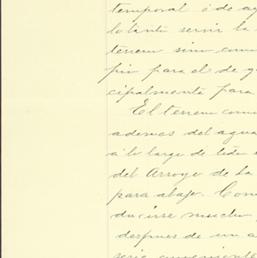 temporal ó de ag
lo tanto servir la
terreno sin cons
pio para el de g
cipalmente para
El terreno com
ademas del agua
á lo largo de todo
del Arroyo de la
para abajo. Com
ducirse mucho
despues de un a